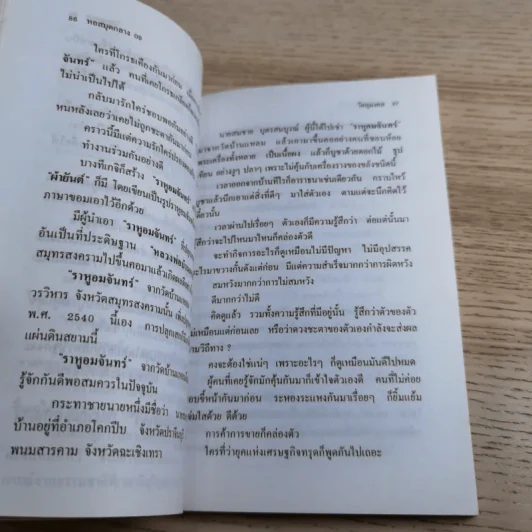 86 หอสมุดกลาง 09
ใครที่โกรธเคืองกันมาก่อน
จันทร์" แล้ว คนที่เคยโกรธเกลียด
ไม่น่าเป็นไปได้
กลับมารักใคร่ชอบพอกันอย่าง
หนหลังเลยว่าเคยไม่ถูกชะตากันมา
คราวนี้มีแต่ความรักใคร่ปรองดอง
ทำงานร่วมกันอย่างดี
บางทีเกจิก็สร้าง "ราหูอมจันทร์"
ก็มี โดยเขียนเป็นรูปราหู
ภาษาขอมเอาไว้อีกด้วย
มีผู้นำเอา "ราหูอมจันทร์"
อันเป็นที่ประดิษฐาน "หลวงพ่อ
สมุทรสงครามไปขึ้นคอมาแล้วเกิด
"ราหูอมจันทร์" จากวัดบ้าน
วรวิหาร จังหวัดสมุทรสงครามนั้น
พ.ศ. 2540 นี้เอง การปลุกเสก
แผ่นดินสยามนี้
"ราหูอมจันทร์" จากวัดบ้านแหลม
รู้จักกันดีพอสมควรในปัจจุบัน
กระทาชายนายหนึ่งมีชื่อว่า
บ้านอยู่ที่อำเภอโคกปีบ จังหวัดปราจีนบุรี
พนมสารคาม จังหวัดฉะเชิงเทรา
วัตถุมงคล 87
นายสมชาย บุตรสมบูรณ์ ผู้นี้ได้ไปเช่า "ราหูอมจันทร์"
จากวัดบ้านแหลม แล้วเอามาขึ้นคออย่างคนที่ชอบห้อย
พระเครื่องทั้งหลาย เป็นเนื้อผง แล้วก็บูชาด้วยดอกไม้ ธูป
เทียน อย่างงูๆ ปลาๆ เพราะไม่คุ้นกับเครื่องรางของขลังชนิดนี้
เวลาออกจากบ้านทีไรก็อาราธนาเช่นเดียวกัน กราบไหว้
บูชาแล้วนึกเอาแต่สิ่งที่ดีๆ มาใส่ตัวเอง ตามแต่จะนึกคิดไว้
เดี๋ยวนั้น
เวลาผ่านไปเรื่อยๆ ตัวเองก็มีความรู้สึกว่า ต่อแต่นั้นมา
รู้สึกว่าจะไปไหนมาไหนก็คล่องตัวดี
จะทำกิจการอะไรก็ดูเหมือนไม่มีปัญหา ไม่มีอุปสรรค
อะไรมาขวางกั้นดังแต่ก่อน มีแต่ความสำเร็จมากกว่าการผิดหวัง
สมหวังมากกว่าการไม่สมหวัง
ดีมากกว่าไม่ดี
คิดดูแล้ว รวมทั้งความรู้สึกที่มีอยู่นั้น รู้สึกว่าตัวของตัว
ไม่เหมือนแต่ก่อนเลย หรือว่าดวงชะตาของตัวเองกำลังจะส่งผล
ตามวิถีทาง ?
คงจะต้องใช่แน่ๆ เพราะอะไรๆ ก็ดูเหมือนมันดีไปหมด
ผู้คนที่เคยรู้จักมักคุ้นกันมาก็เข้าใจตัวเองดี คนที่ไม่ค่อย
ชอบขี้หน้ากันมาก่อน ระหองระแหงกันมาเรื่อยๆ ก็ยิ้มแย้ม
แจ่มใสด้วย ดีด้วย
การค้าการขายก็คล่องตัว
ใครที่ว่ายุคแห่งเศรษฐกิจทรุดก็พูดกันไปเถอะ